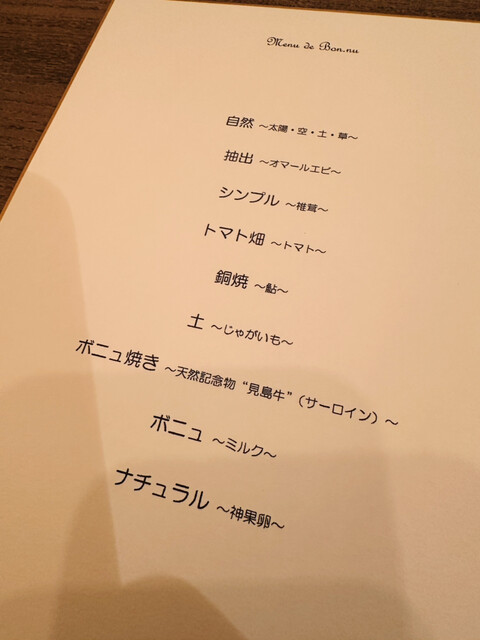 Menu de Bon.nu
自然 〜太陽・空・土・草〜
抽出 〜オマールエビ〜
シンプル 〜椎茸〜
トマト畑 〜トマト〜
銅焼 〜鮎〜
土 〜じゃがいも〜
ボニュ焼き 〜天然記念物“見島牛”（サーロイン）〜
ボニュ 〜ミルク〜
ナチュラル 〜神果卵〜